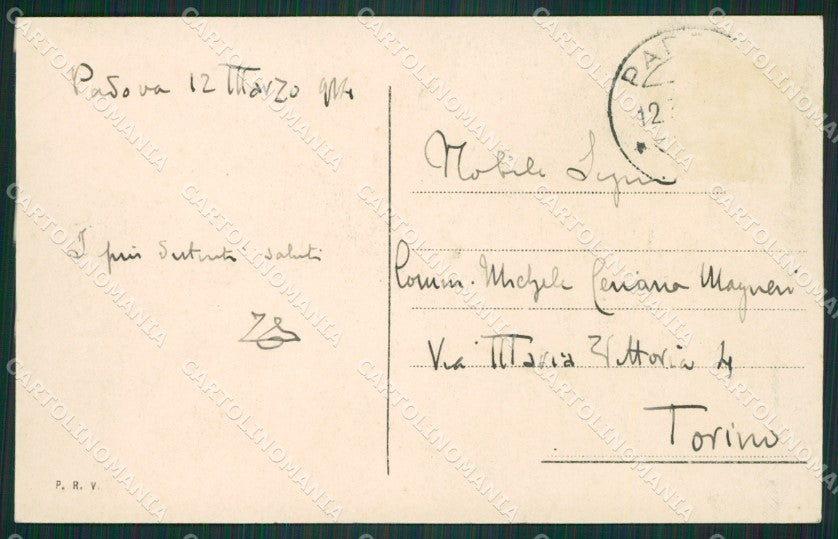 Padova 12 Marzo 914
I più distinti saluti
P. R. V.
PAD
12
Nobile Signor
Comm. Michele Ceriana Mayneri
Via Maria Vittoria 4
Torino
CARTOLINOMANIA